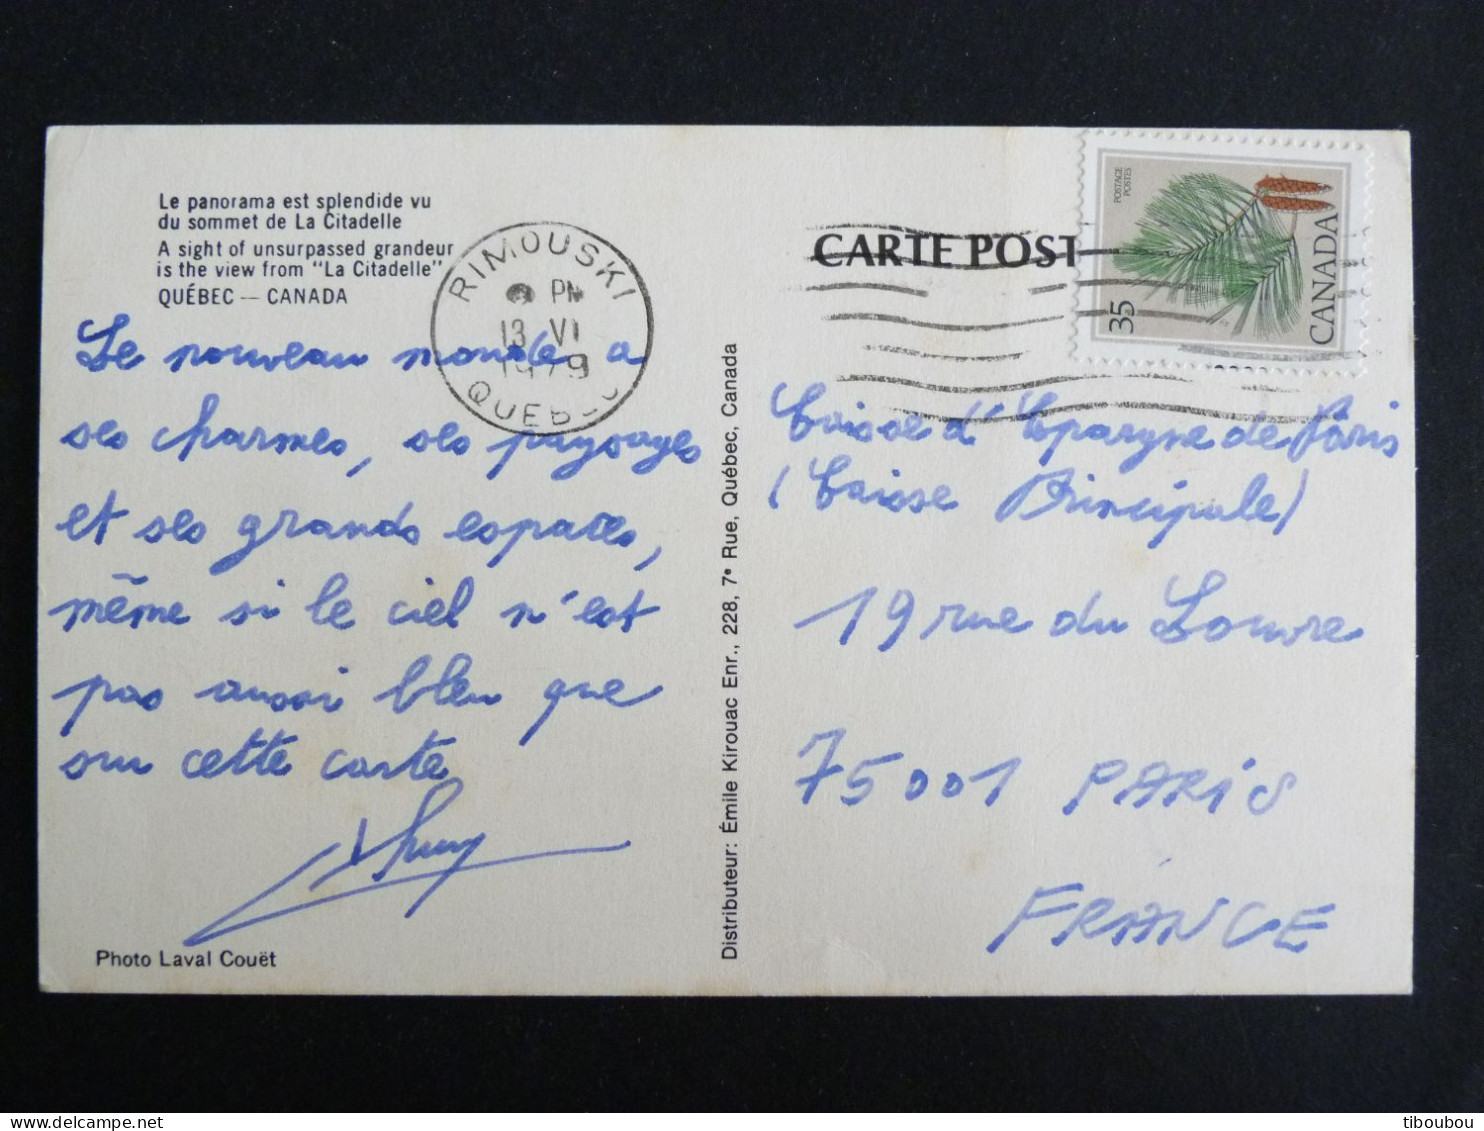 Le panorama est splendide vu
du sommet de La Citadelle
A sight of unsurpassed grandeur
is the view from "La Citadelle"
QUÉBEC — CANADA
RIMOUSKI
PM
13 VI
1979
QUEBEC
Le nouveau monde a
ses charmes, ses paysages
et ses grands espaces,
même si le ciel n'est
pas aussi bleu que
sur cette carte
Photo Laval Couët
Distributeur: Émile Kirouac Enr., 228, 7e Rue, Québec, Canada
CARTE POST
POSTAGE
POSTES
35
CANADA
Caisse d'Epargne de Paris
(Caisse Principale)
19 rue du Louvre
75001 PARIS
FRANCE
tiboubou